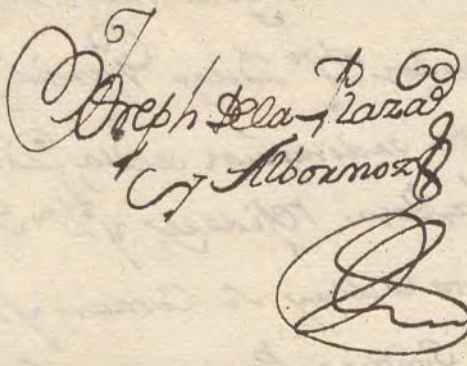 Joseph de la Plaza
y Albornoz